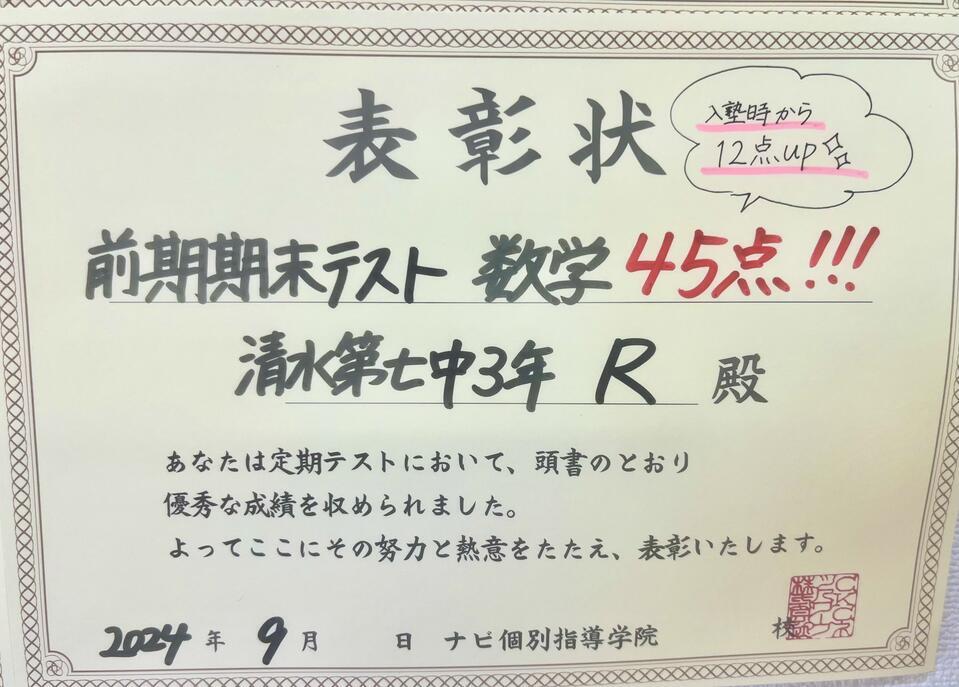 表彰状
入塾時から
12点up
前期期末テスト 数学 45点!!!
清水第七中3年 R 殿
あなたは定期テストにおいて、頭書のとおり
優秀な成績を収められました。
よってここにその努力と熱意をたたえ、表彰いたします。
2024 年 9 月 日 ナビ個別指導学院